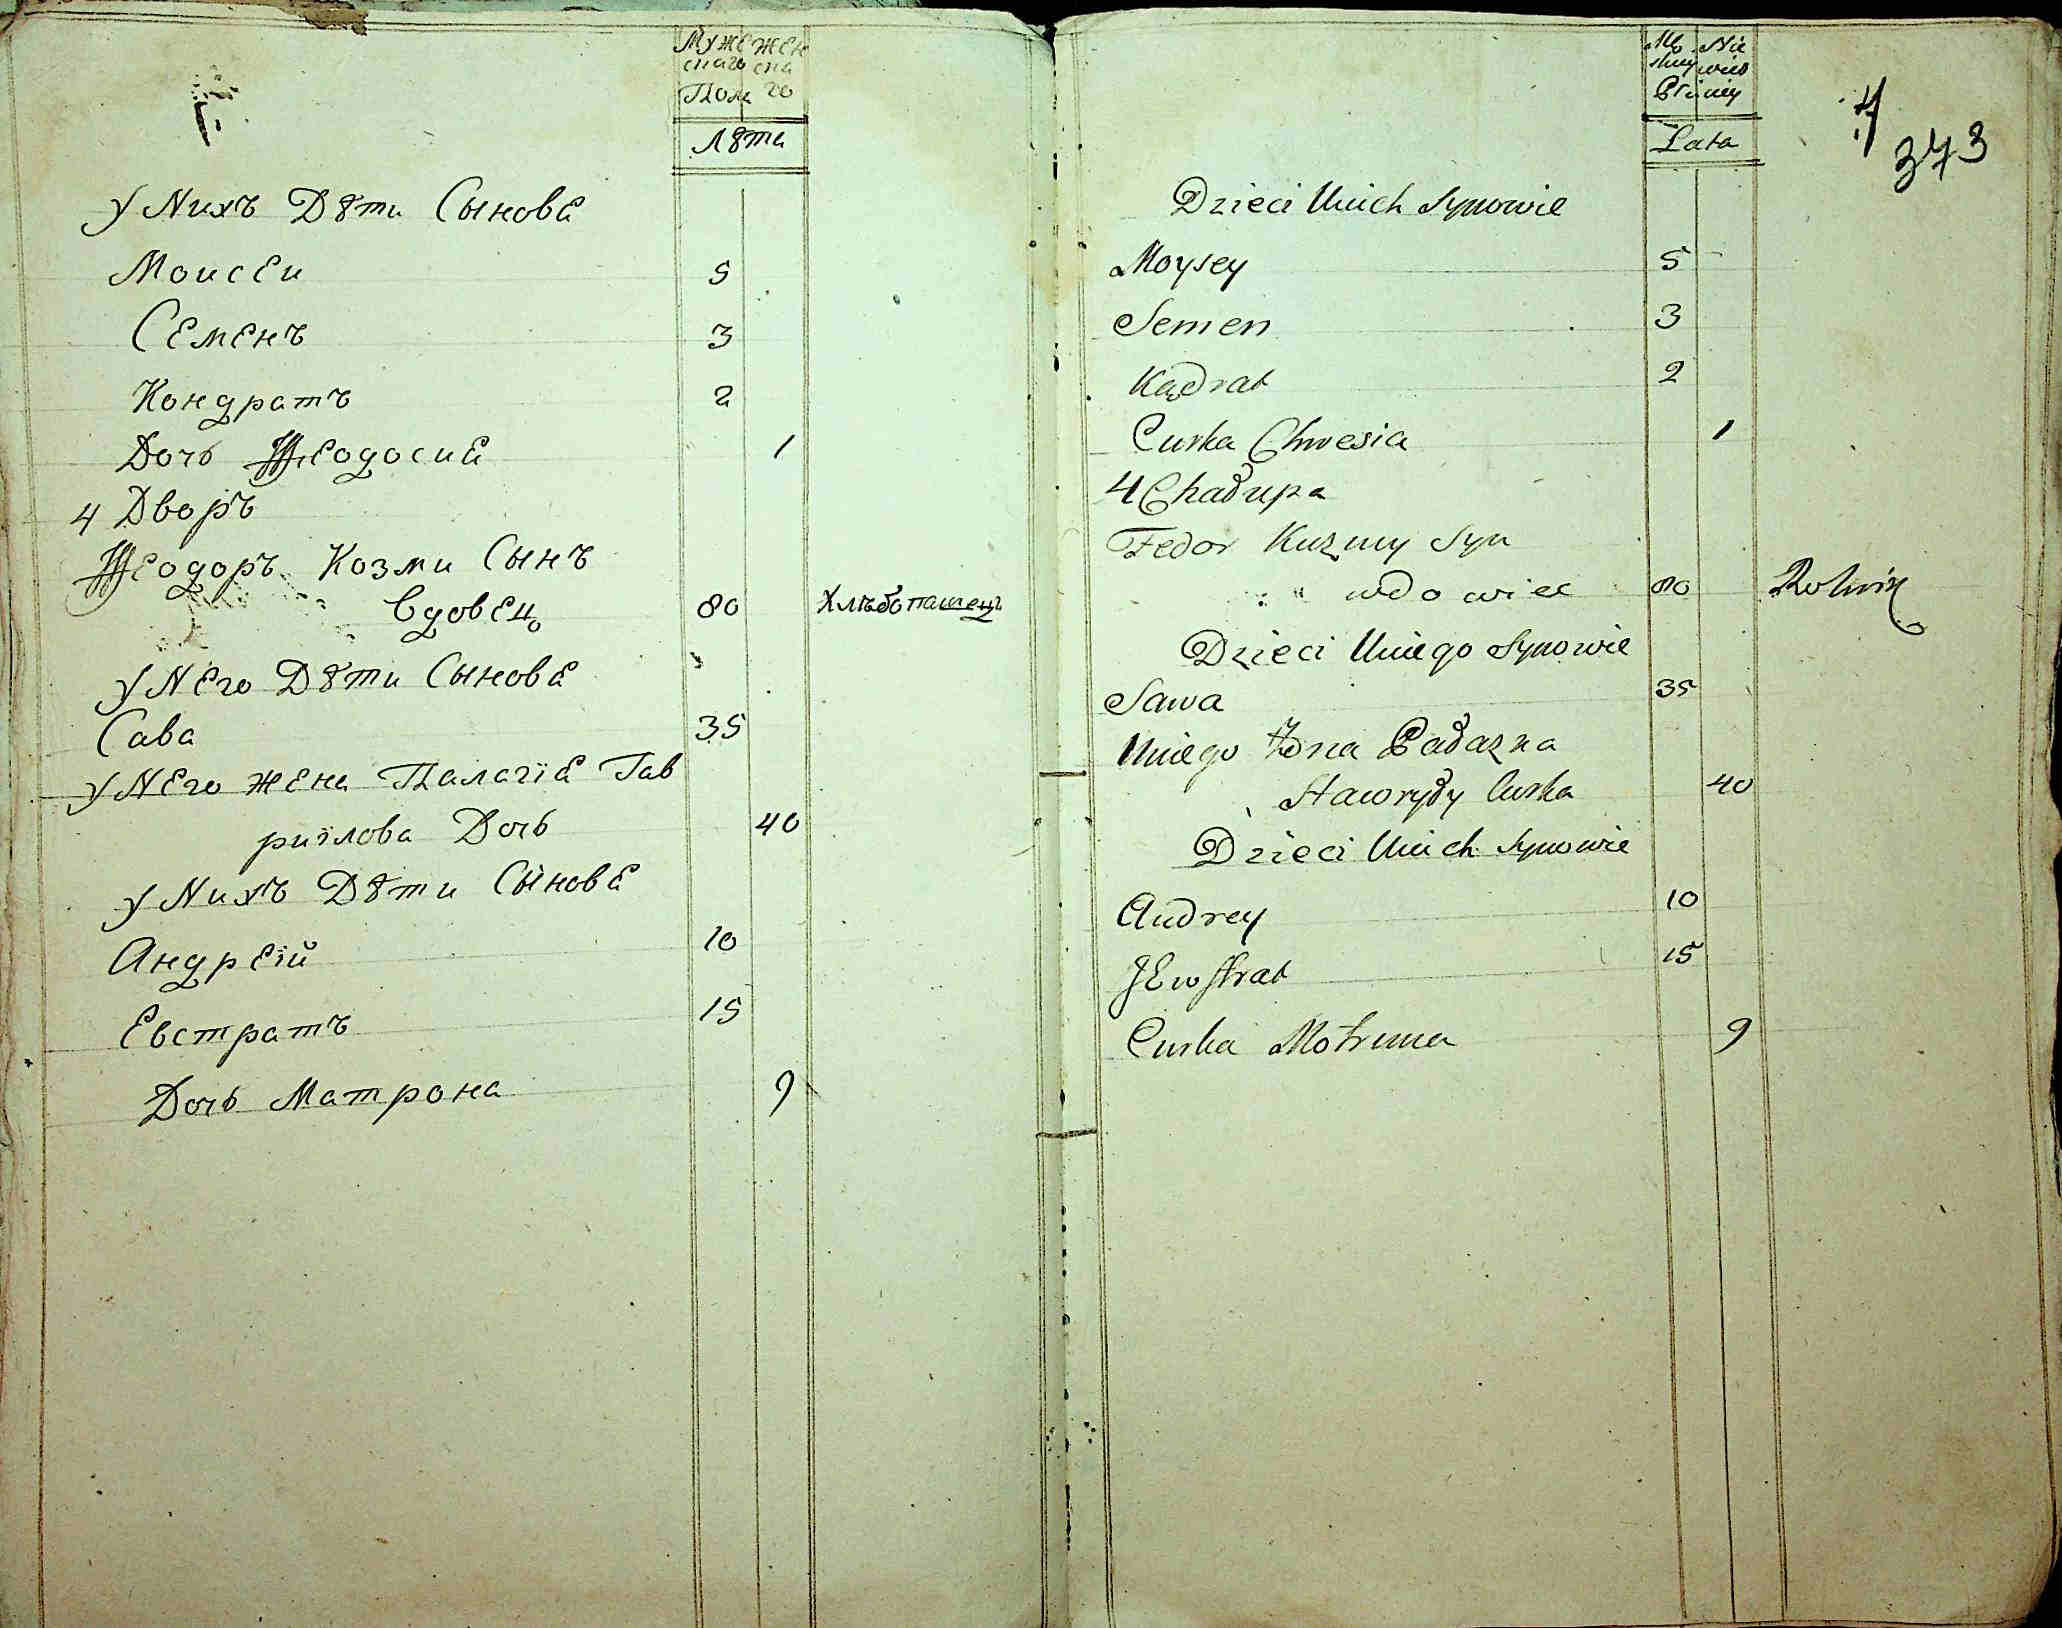 Мужеженскаго ска
Пола го
Лѣта
у Нихъ Дѣти Сынове
Моисеи 5
Семенъ 3
Кондратъ 2
Дочь Ѳеодосие 1
4 Дворъ
Ѳеодоръ Козми Сынъ
Вдовец 80 Хлѣбопашецъ
у Него Дѣти Сынове
Сава 35
у Него жена Палагїе Гав
риїлова Дочь 40
у Нихъ Дѣти Сынове
Андреїй 10
Евстратъ 15
Дочь Матрона 9
Lata
7
373
Dzieci Unich Synowie
Moysey 5
Semen 3
Kądrat 2
Curka Chwesia 1
4 Chałupa
Fedor Kuzmy Syn
wdowiec 80 Rolnik
Dzieci Uniego Synowie
Sawa 35
Uniego Żona Pałazka
Hawryły Curka 40
Dzieci Unich Synowie
Andrey 10
JEwstrat 15
Curka Motruna 9